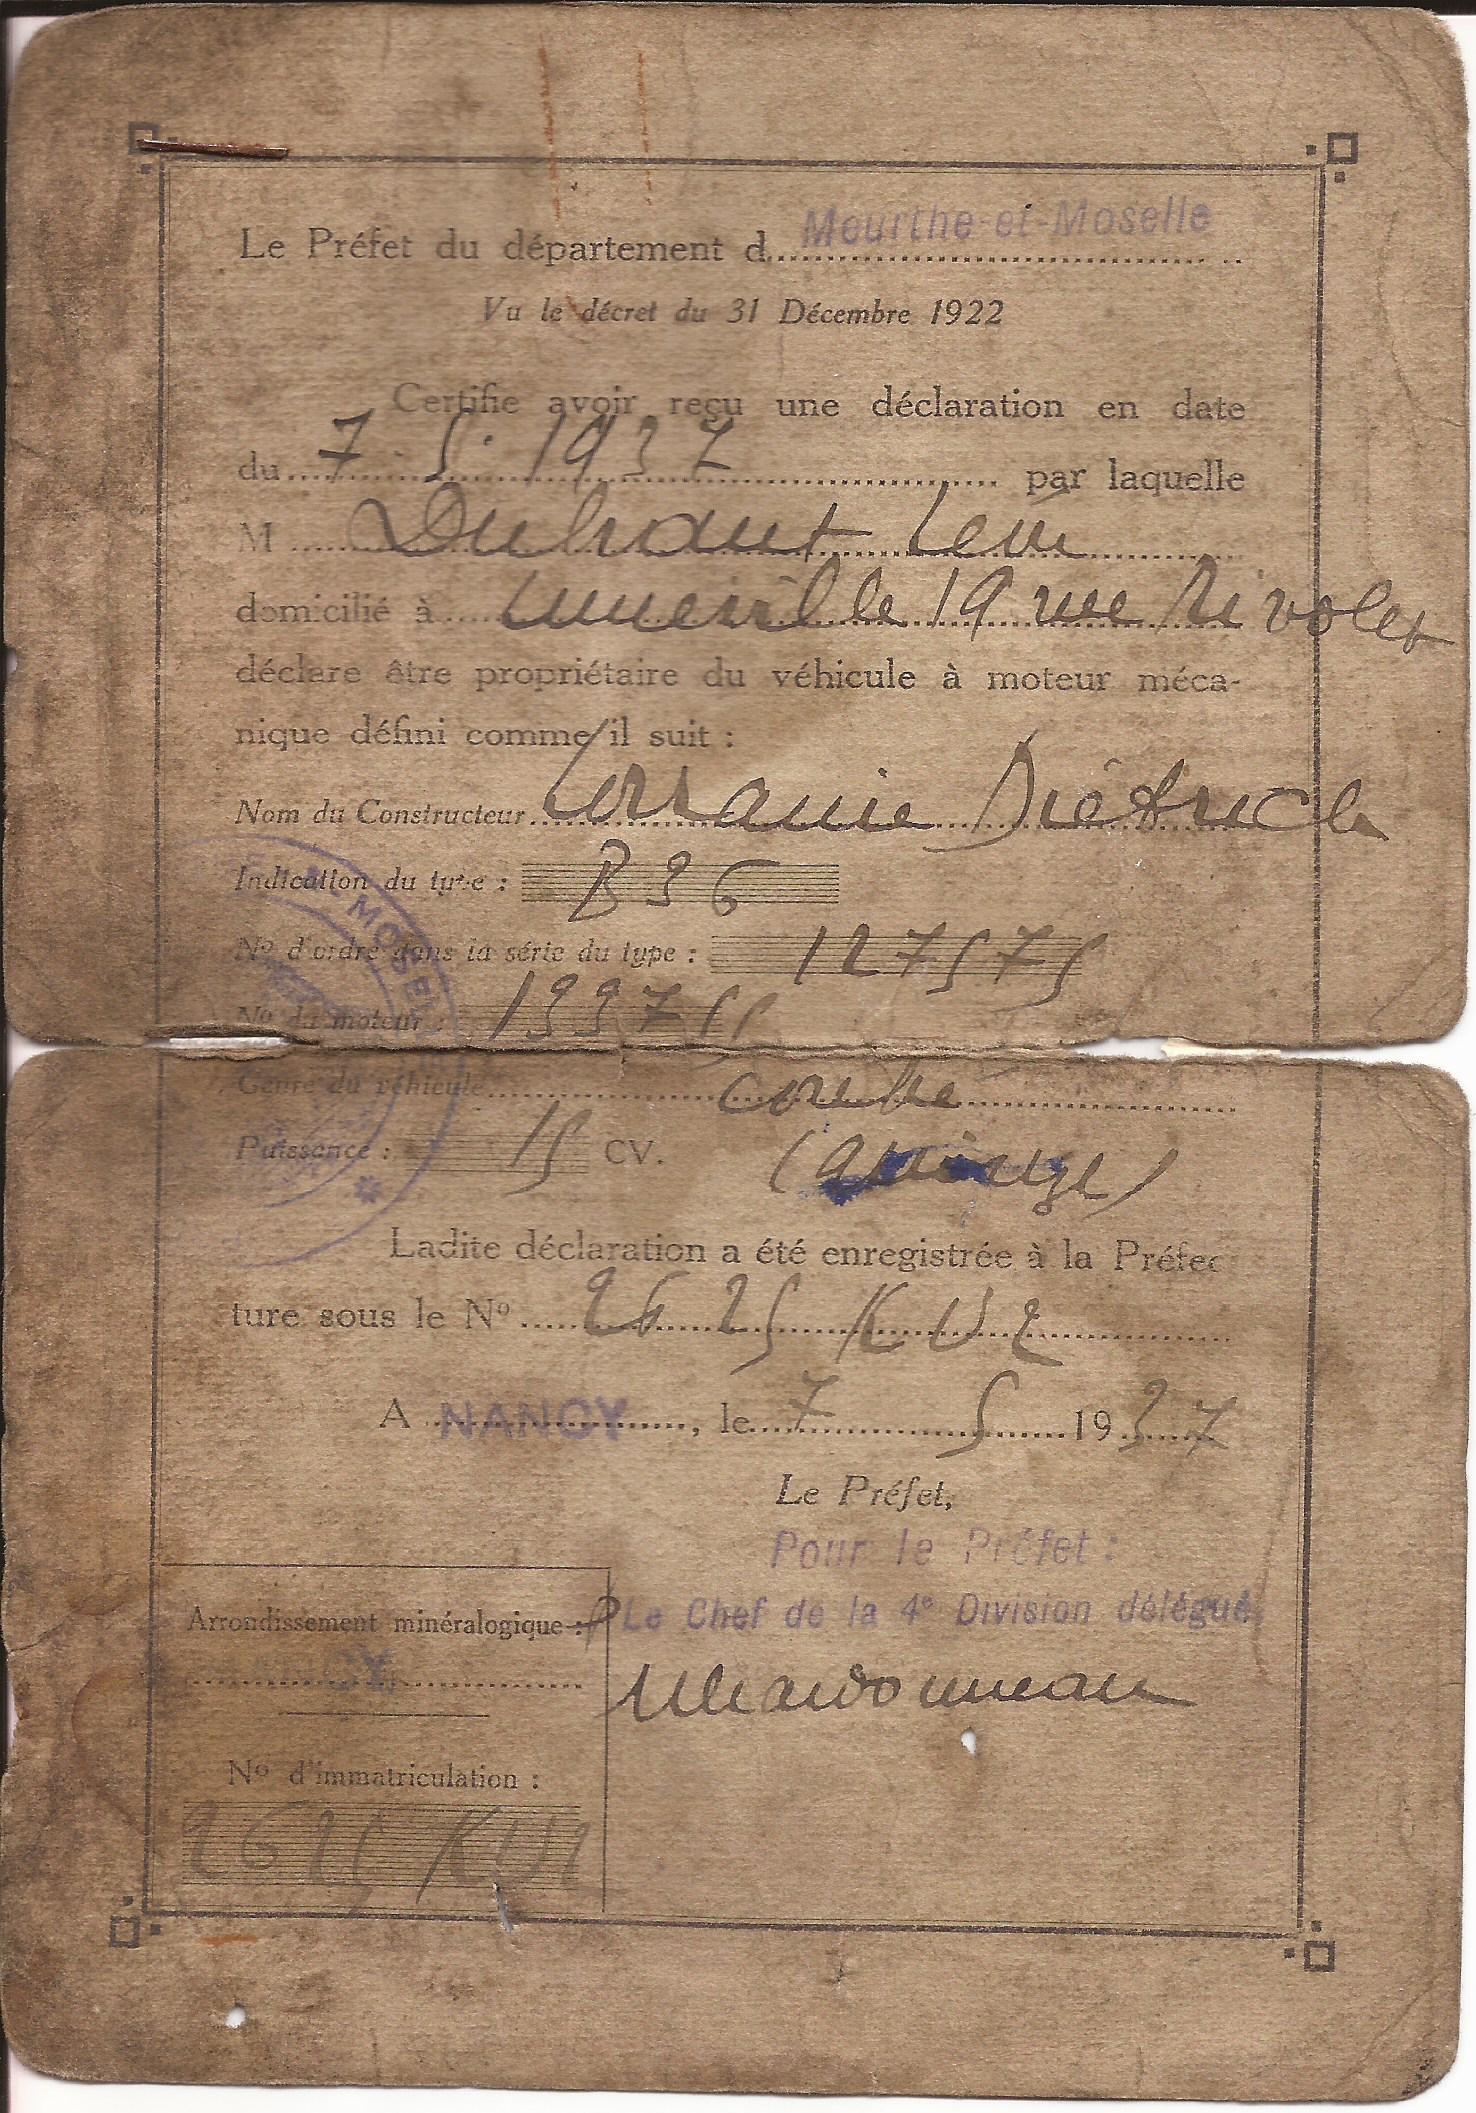 Meurthe-et-Moselle
Le Préfet du département d
Vu le décret du 31 Décembre 1922
Certifie avoir reçu une déclaration en date
du 7.5.1937 par laquelle
M Duhaut
domicilié à 19 rue Rivolet
déclare être propriétaire du véhicule à moteur méca-
nique défini comme il suit :
Nom du Constructeur Lorraine Diétrich
Indication du type : B36
N° d'ordre dans la série du type : 127575
N° du moteur :
Genre du véhicule
Puissance : 15 CV. (quinze)
Ladite déclaration a été enregistrée à la Préfec
ture sous le N° 2625 KU2
A NANCY, le 7 5 1937
Le Préfet,
Pour le Préfet :
Le Chef de la 4e Division délégué
Arrondissement minéralogique :
NANCY
N° d'immatriculation :
2625 KU2